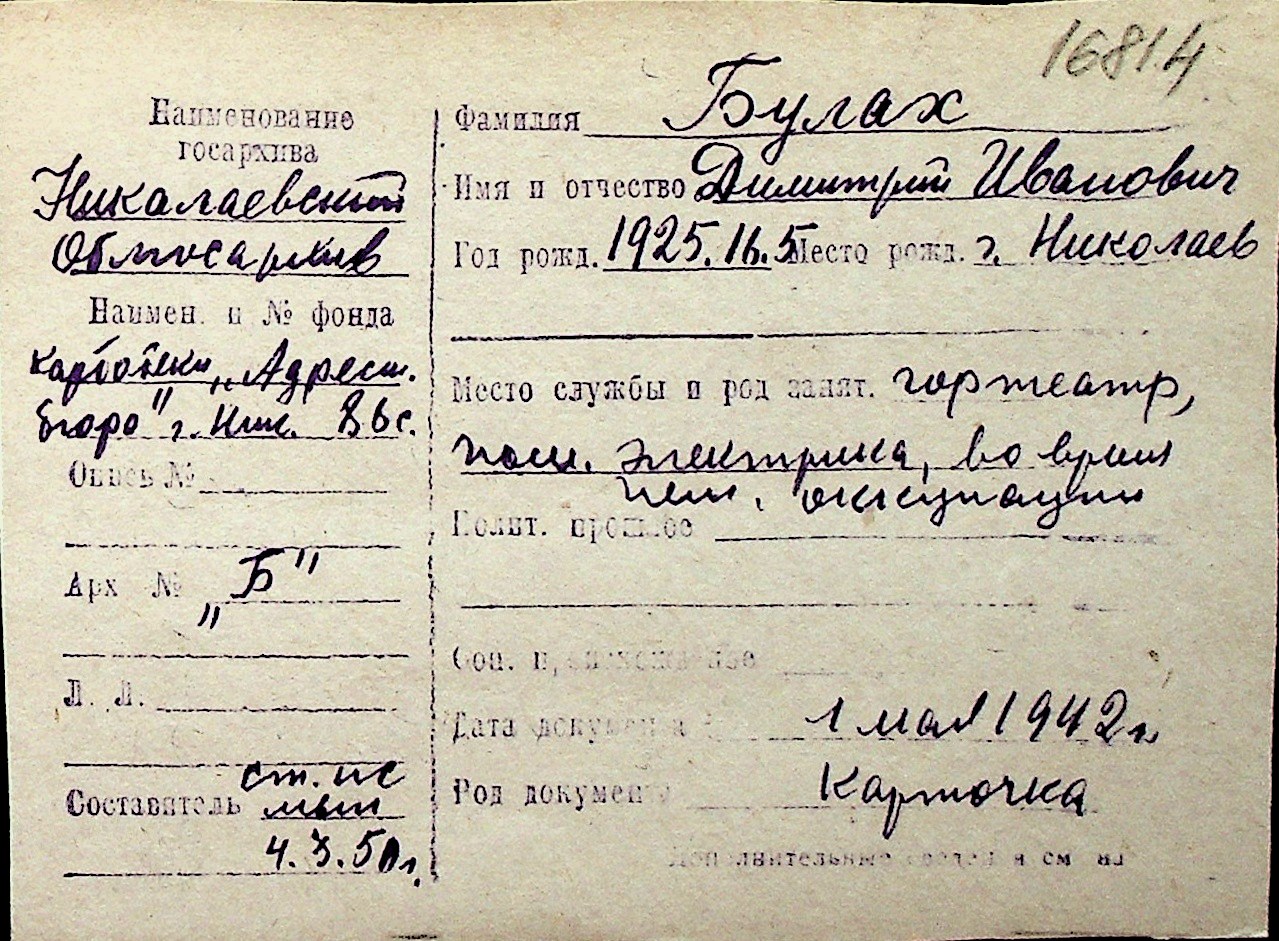 16814
Наименование
госархива
Николаевский
Облгосархив
Наимен. и № фонда
картотеки „Адресн.
бюро" г. Ник.
Опись №
Арх №
„Б"
Л. Л.
Составитель ст. нс
4.3.50г.
Фамилия Булах
Имя и отчество Димитрий Иванович
Год рожд. 1925.16.5 Место рожд. г. Николаев
Место службы и род занят. гортеатр,
пом. электрика, во время
нем. оккупации
Полит. прошлое
Соц. происхождение
Дата документа 1 мая 1942 г.
Род документа Карточка
Дополнительные сведения см на